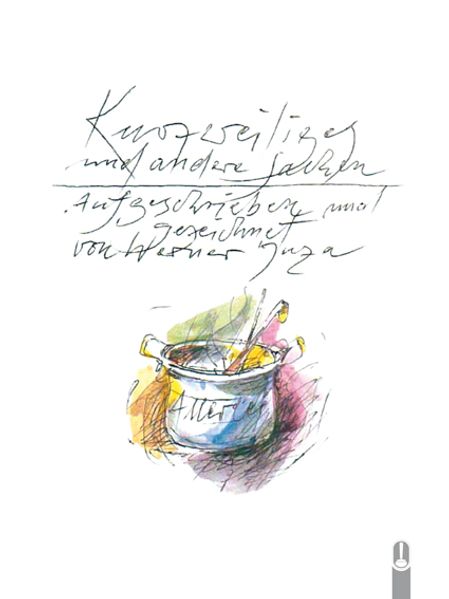 Kurzweiliges
und andere Sachen
Aufgeschrieben und
gezeichnet
von Werner Juza
Allerlei